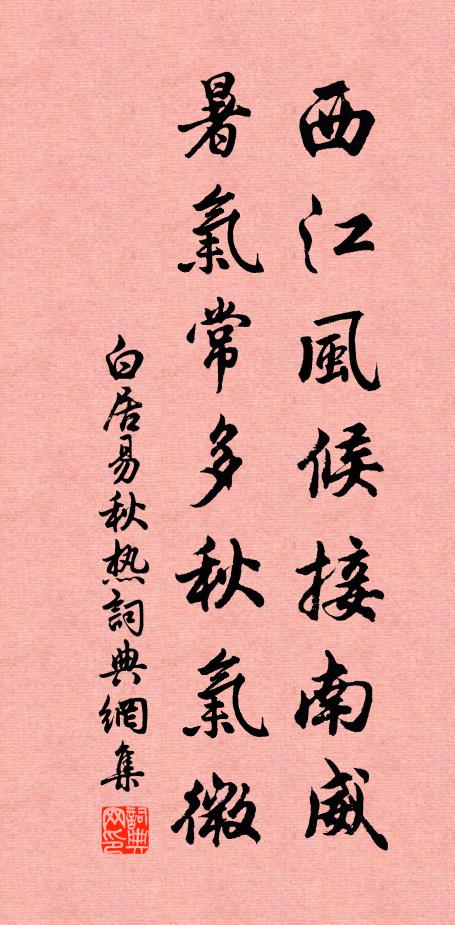 西江風候接南威
暑氣常多秋氣微
白居易秋热詞典網集
詞典网印